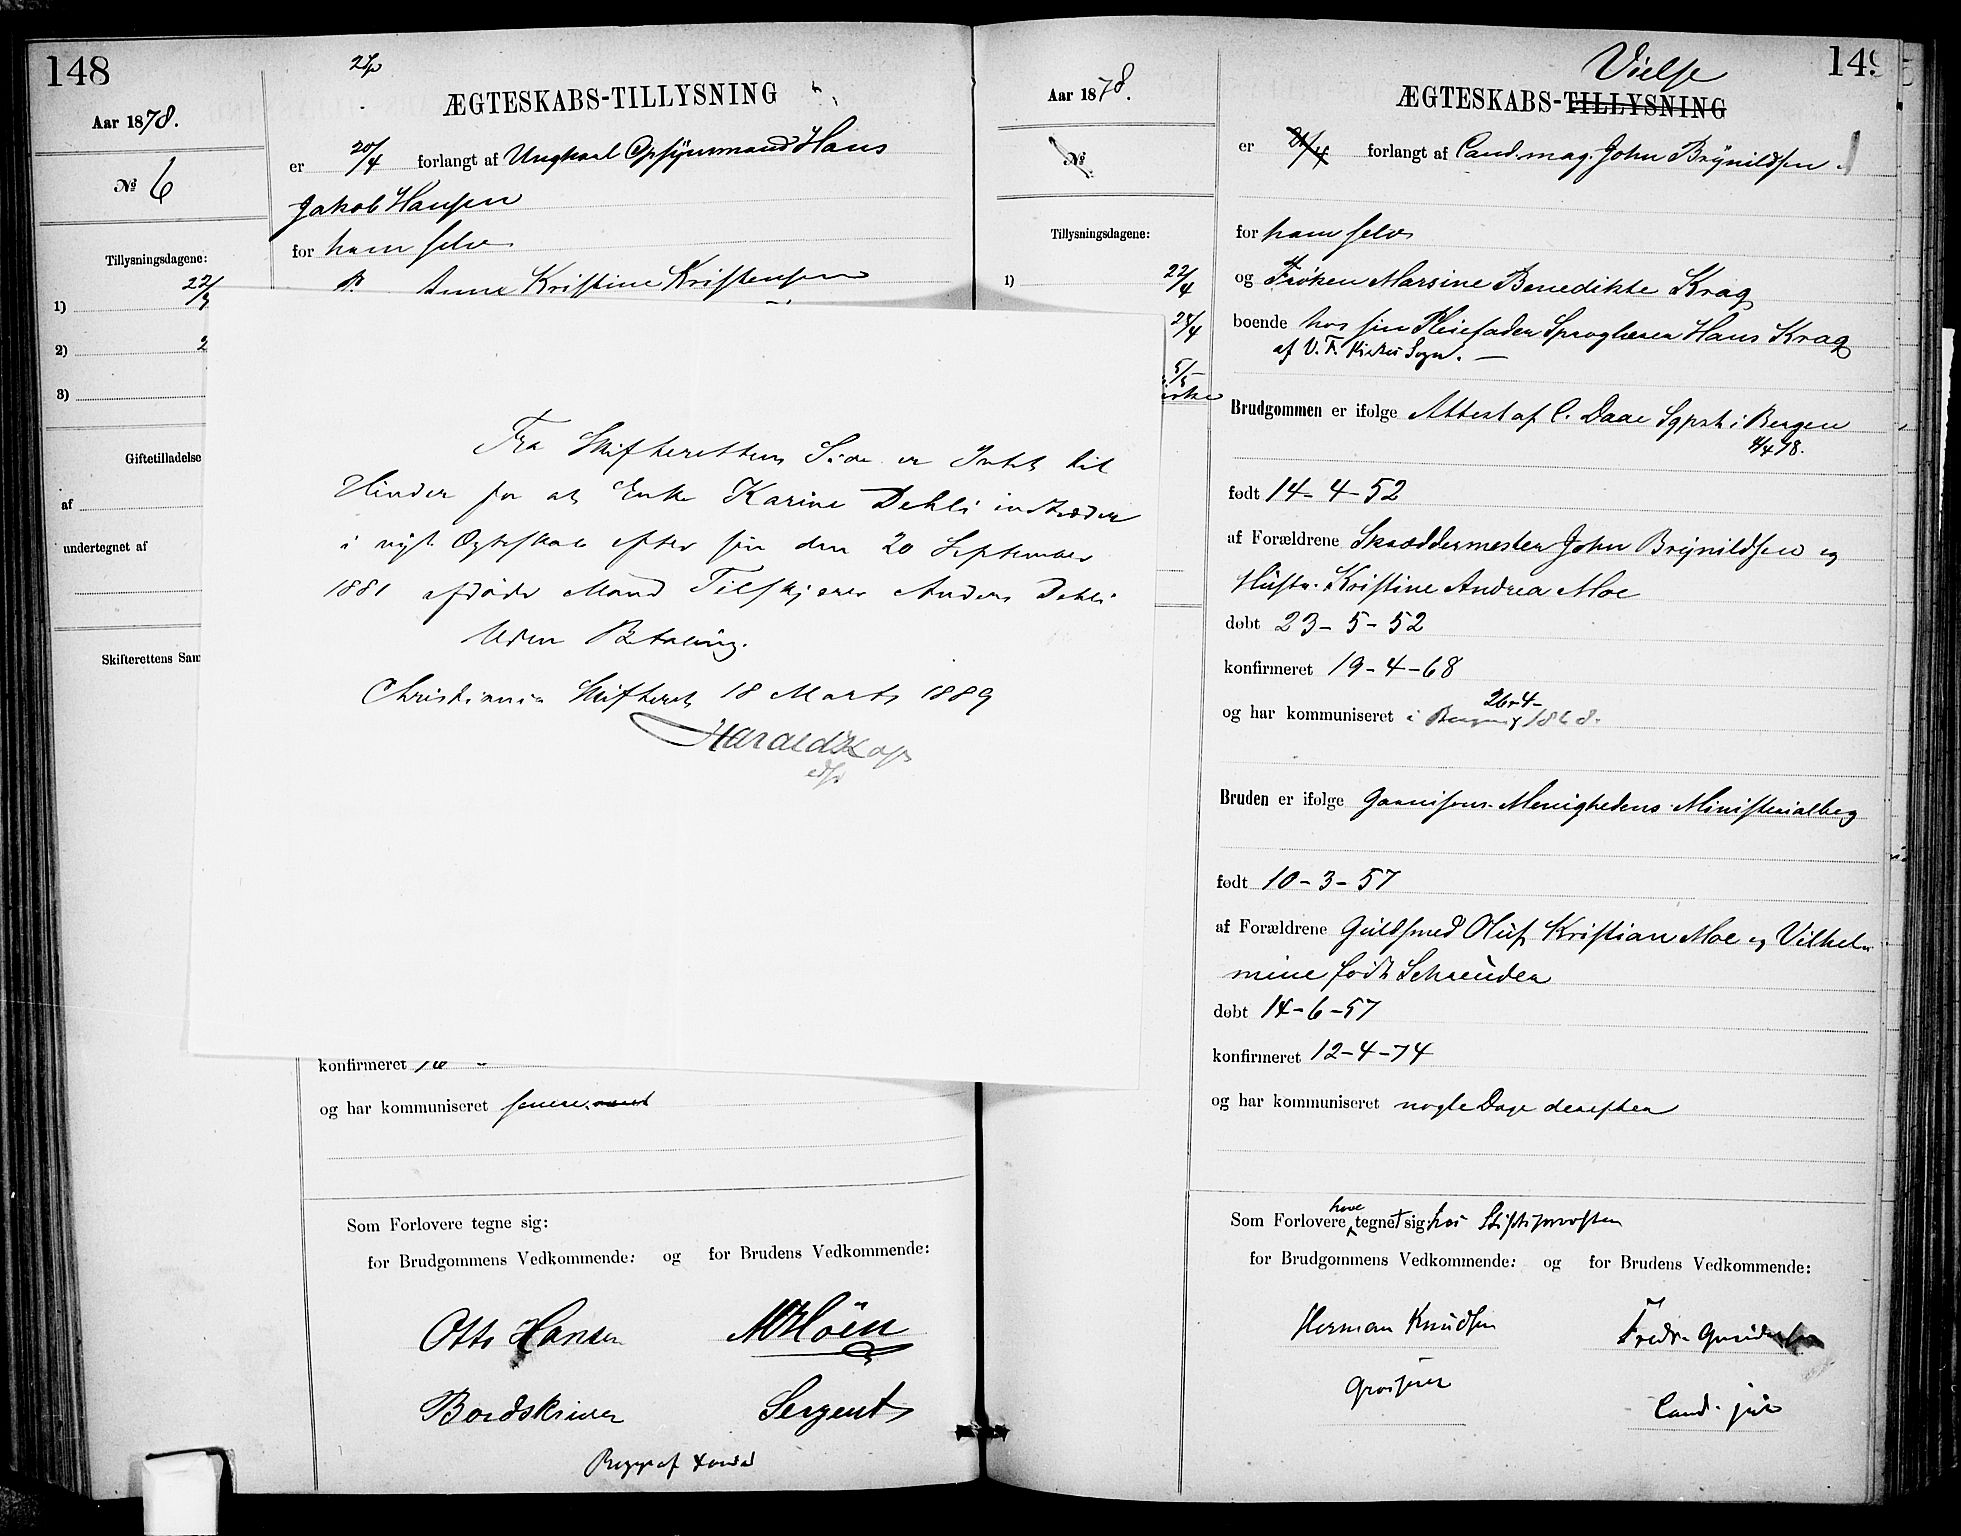 148
Aar 1878.
№ 6
Tillysningsdagene:
1) 22/4
2) 2
3)
Giftetilladelse
af
undertegnet af
Skifterettens Sam
ÆGTESKABS-TILLYSNING
er 20/4 forlangt af Ungkarl Opsynsmand Hans
Jakob Hansen
for ham selv
Anne Kristine Kristensen
Fra Skifterettens Side er Intet til
Hinder for at Enke Karine Dehli indtræder
i nyt Ægteskab efter sin den 20 September
1881 afdøde Mand Tilskjærer Anders Dehli
Uden Betaling.
Christiania Skifteret 18 Marts 1889
Harald
konfirmeret
og har kommuniseret senere
Som Forlovere tegne sig:
for Brudgommens Vedkommende: og for Brudens Vedkommende:
Otto Hansen
Høen
Bordskriver
Sergent
149
Aar 1878.
№
Tillysningsdagene:
1) 22/4
28/4
5/5
Vielse
ÆGTESKABS-TILLYSNING
er forlangt af Cand. mag. John Brynildsen
for ham selv
og Frøken Marsine Benedikte Krag
boende hos sin Pleiefader Sproglærer Hans Krag
af V. F. Kirkes Sogn. —
Brudgommen er ifølge Attest af C. Daae Sgprst i Bergen
4/4 78.
født 14-4-52
af Forældrene Skræddermester John Brynildsen og
Hustr. Kristine Andrea Moe
døbt 23-5-52
konfirmeret 19-4-68
og har kommuniseret i Bergen 26-4- 1868.
Bruden er ifølge Garnisons-Menighedens Ministerialbog
født 10-3-57
af Forældrene Guldsmed Oluf Kristian Moe og Vilhel-
mine født Schreuder
døbt 14-6-57
konfirmeret 12-4-74
og har kommuniseret nogle Dage derefter
Som Forlovere have tegnet sig hos Stiftsprovsten
for Brudgommens Vedkommende: og for Brudens Vedkommende:
Herman Knudsen
Fredr.
Grosserer
Cand. jur